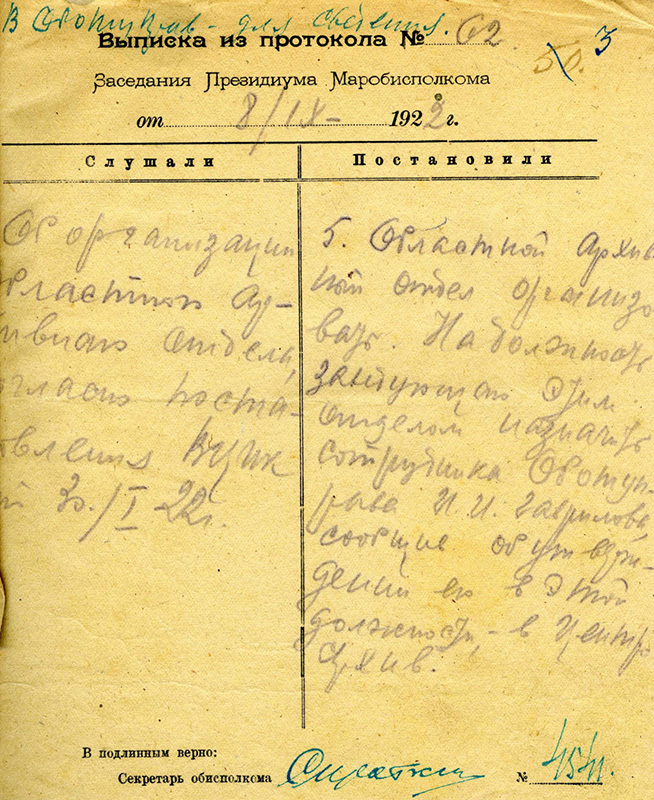 В Оботуправ - для сведения.
Выписка из протокола № 62
50. 3
Заседания Президиума Маробисполкома
от 8/IX- 1922 г.
Слушали
Об организации
бластного Ар-
ивного отдела,
огласно поста-
овления ВЦИК
30/I 22г.
Постановили
5. Областной Архив-
ный отдел организо
вать. На должность
заведующего этим
отделом назначить
сотрудника Оботуп-
рава И. И. Гаврилова,
сообщив об утвержд-
дении его в этой
должности, - в Центр
Архив.
В подлинным верно:
Секретарь обисполкома
№ 4541